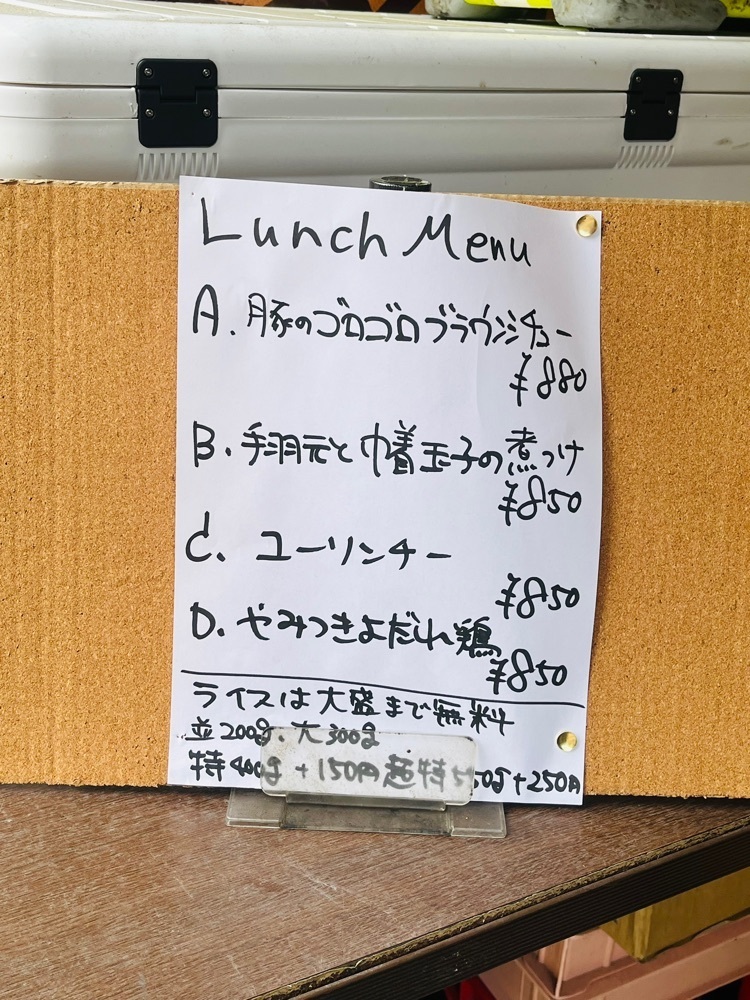 Lunch Menu
A. 豚のゴロゴロブラウンシチュー
¥880
B. 手羽元と巾着玉子の煮つけ
¥850
C. ユーリンチー
¥850
D. やみつきよだれ鶏
¥850
ライスは大盛まで無料
並200g、大300g
特400g +150円 超特550g+250円